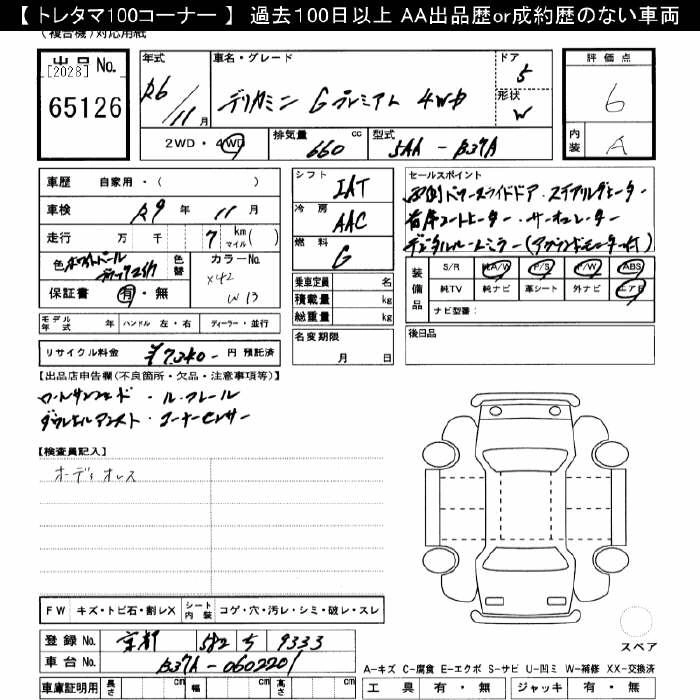 【 トレタマ100コーナー 】 過去100日以上 AA出品歴or成約歴のない車両
(複合機)対応用紙
出品 No.
[2028]
65126
年式
R6/11月
車名・グレード
デリカミニ Gプレミアム 4WD
ドア
5
形状
W
評価点
6
内装
A
2WD・4WD
排気量
660 cc
型式
5AA-B37A
車歴 自家用・( )
車検 R9年 11月
走行 万 千 7 km マイル( )
色 ホワイトパール
色替
カラーNo.
X42
W13
保証書 有・無
シフト IAT
冷房 AAC
燃料 G
乗車定員 名
積載量 kg
総重量 kg
セールスポイント
デジタルルームミラー
装備品
S/R 純A/W P/S P/W ABS
純TV 純ナビ 革シート 外ナビ エアB
ナビ型番:
モデル年式 年 ハンドル 左・右 ディーラー・並行
名変期限
月 日
後日品
リサイクル料金 ¥7,340- 円 預託済
【出品店申告欄(不良箇所・欠品・注意事項等)】
ロールサンシェード・ルーフレール
コーナーセンサー
【検査員記入】
オーディオレス
FW キズ・トビ石・割レX シート内装 コゲ・穴・汚レ・シミ・破レ・スレ
登録No. 京都 582 ち 9333
車台No. B37A-0602201
車庫証明用 長さ cm 幅 cm 高さ cm
スペア
A-キズ C-腐食 E-エクボ S-サビ U-凹ミ W-補修 XX-交換済
工具 有・無 ジャッキ 有・無